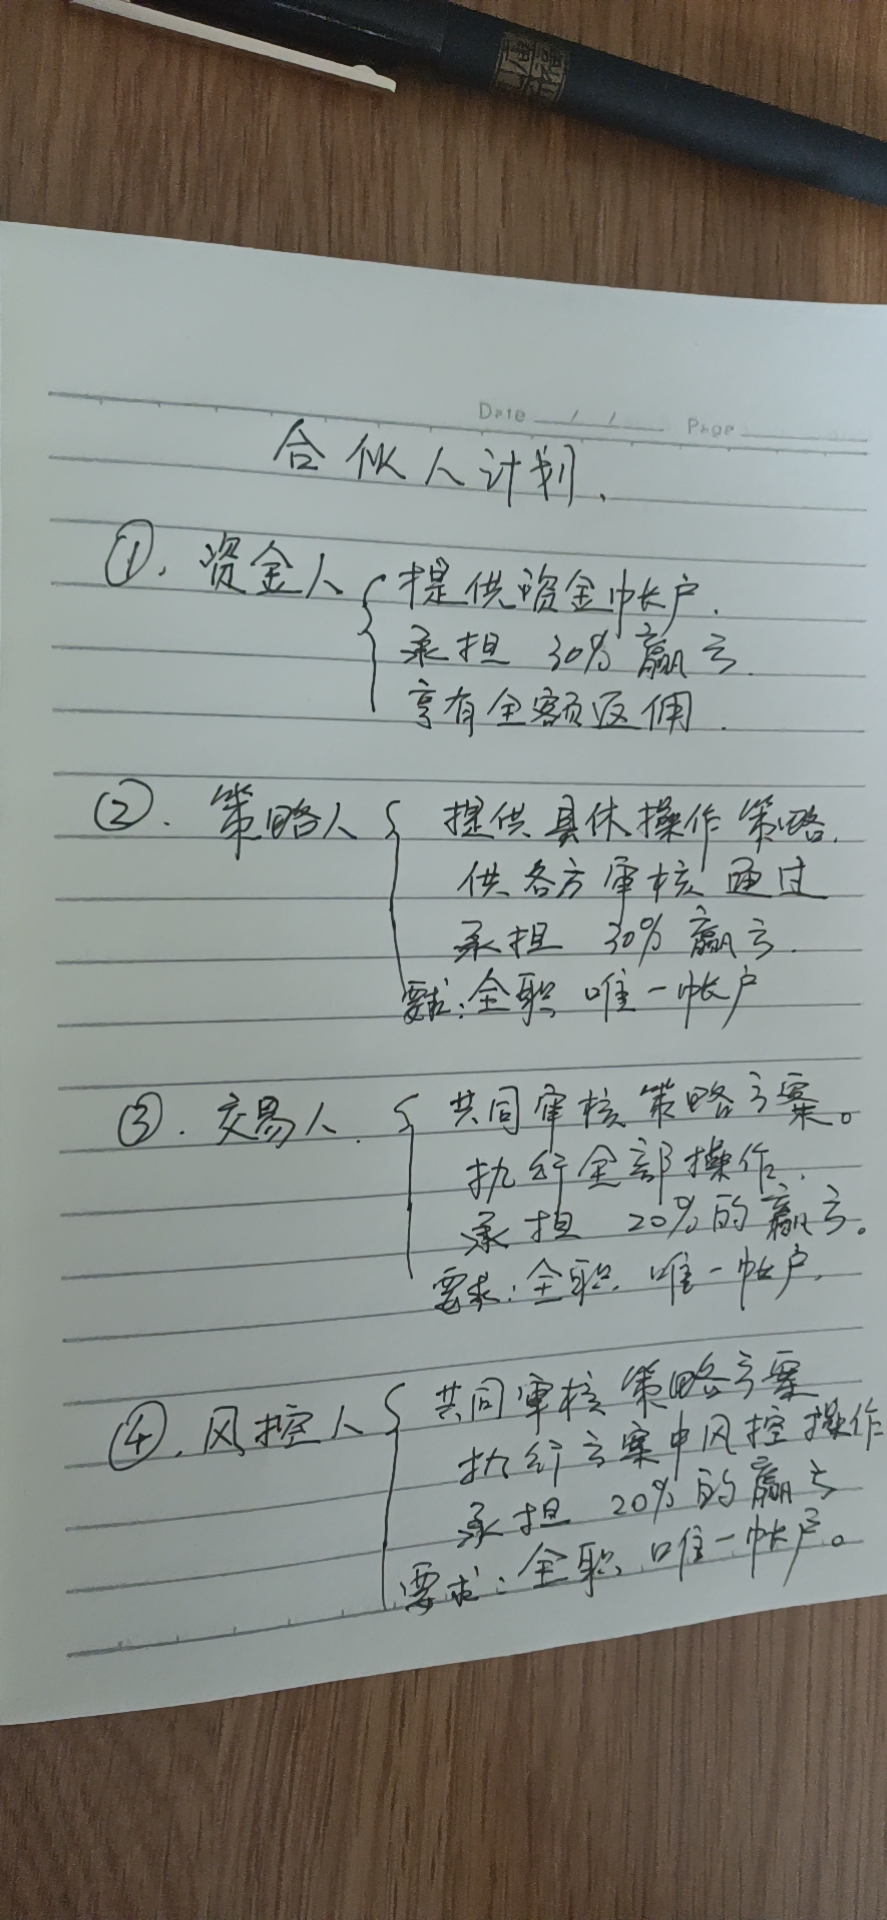 Date / / Page
合伙人计划.
①. 资金人 { 提供资金帐户.
承担 30% 赢亏.
享有全额返佣.
②. 策略人 { 提供具体操作策略.
供各方审核通过
承担 30% 赢亏.
要求:全职 唯一帐户
③. 交易人. { 共同审核策略方案。
执行全部操作.
承担 20%的赢亏。
要求:全职. 唯一帐户.
④. 风控人 { 共同审核策略方案
执行方案中风控操作
承担 20%的赢亏
要求:全职 唯一帐户。